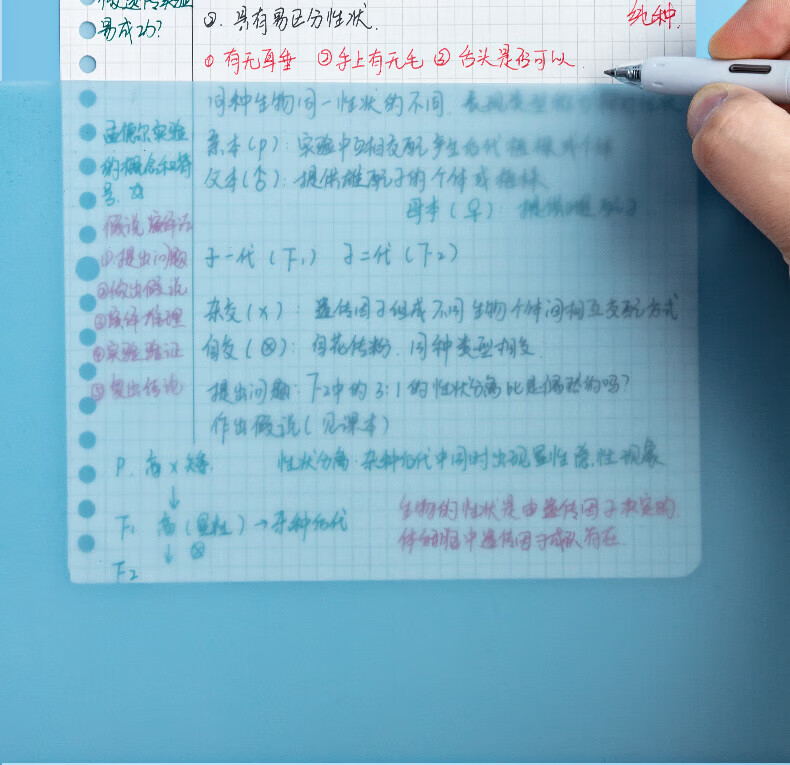 易成功?
②. 具有易区分性状.
纯种.
① 有无耳垂 ② 手上有无毛 ③ 舌头是否可以
同种生物同一性状的不同
孟德尔实验
的概念和符
号.
亲本(P): 实验中互相交配产生后代植株或个体
父本(♂): 提供雄配子的个体或植株
母本(♀): 提供雌配子
假说演绎法
①提出问题
②做出假说
③演绎推理
④实验验证
⑤得出结论
子一代(F₁) 子二代(F₂)
杂交(×): 遗传因子组成不同生物个体间相互交配方式
自交(⊗): 自花传粉. 同种类型相交.
提出问题: F₂中的3:1的性状分离比是偶然的吗?
作出假说(见课本)
P. 高×矮.
性状分离: 杂种后代中同时出现显性隐性现象
↓
F₁ 高(显性)→杂种后代
↓⊗
F₂
生物的性状是由遗传因子决定的.
体细胞中遗传因子成对存在.